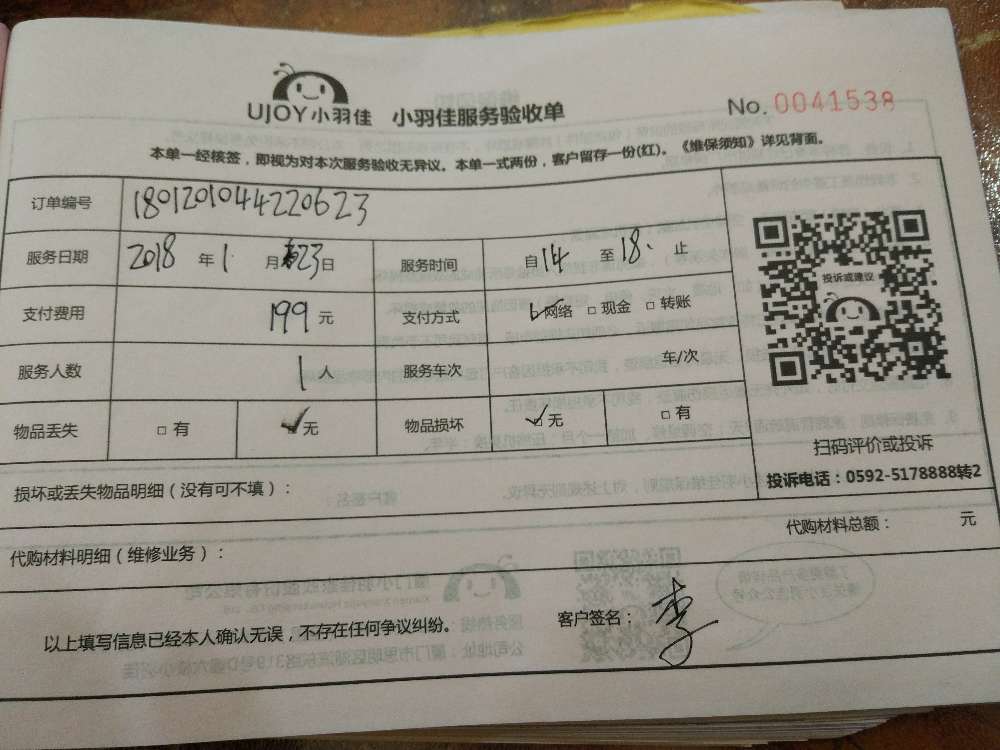 UJOY小羽佳 小羽佳服务验收单 No. 0041538
本单一经核签，即视为对本次服务验收无异议。本单一式两份，客户留存一份(红)。《维保须知》详见背面。
订单编号 180120104422062​3
服务日期 2018 年 1 月 23 日 服务时间 自 14 至 18 止
支付费用 199 元 支付方式 网络 □ 现金 □ 转账
服务人数 1 人 服务车次 车/次
物品丢失 □ 有 ✓ 无 物品损坏 ✓ 无 □ 有
投诉或建议
扫码评价或投诉
投诉电话：0592-5178888转2
损坏或丢失物品明细（没有可不填）：
代购材料明细（维修业务）： 代购材料总额： 元
以上填写信息已经本人确认无误，不存在任何争议纠纷。 客户签名：李